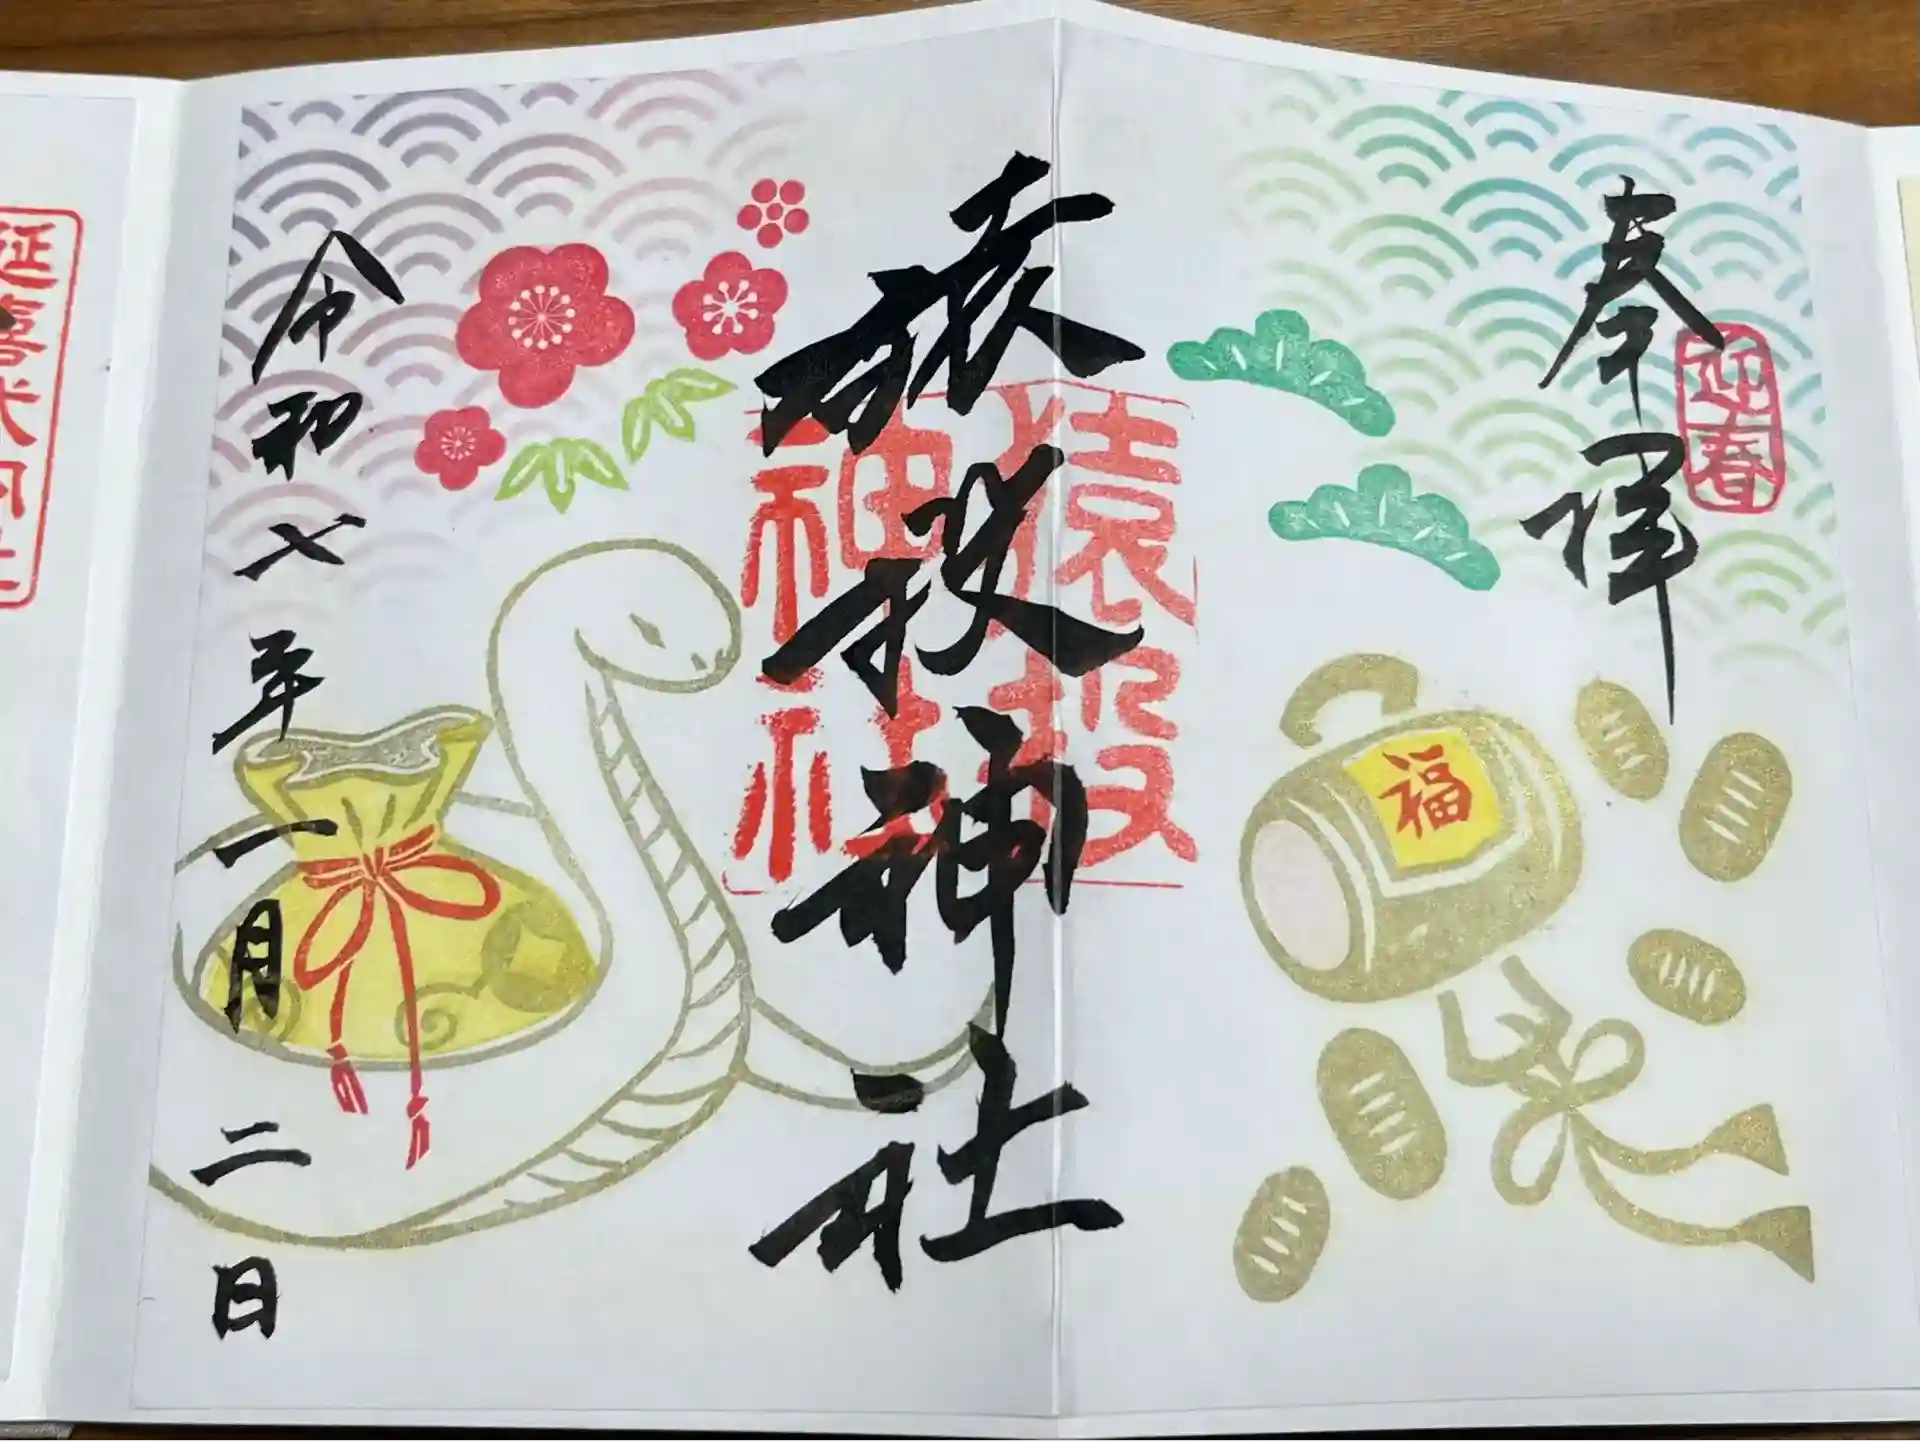 奉拝
迎春
猿投神社
猿投
神社
福
令和七年一月二日
延喜式内社